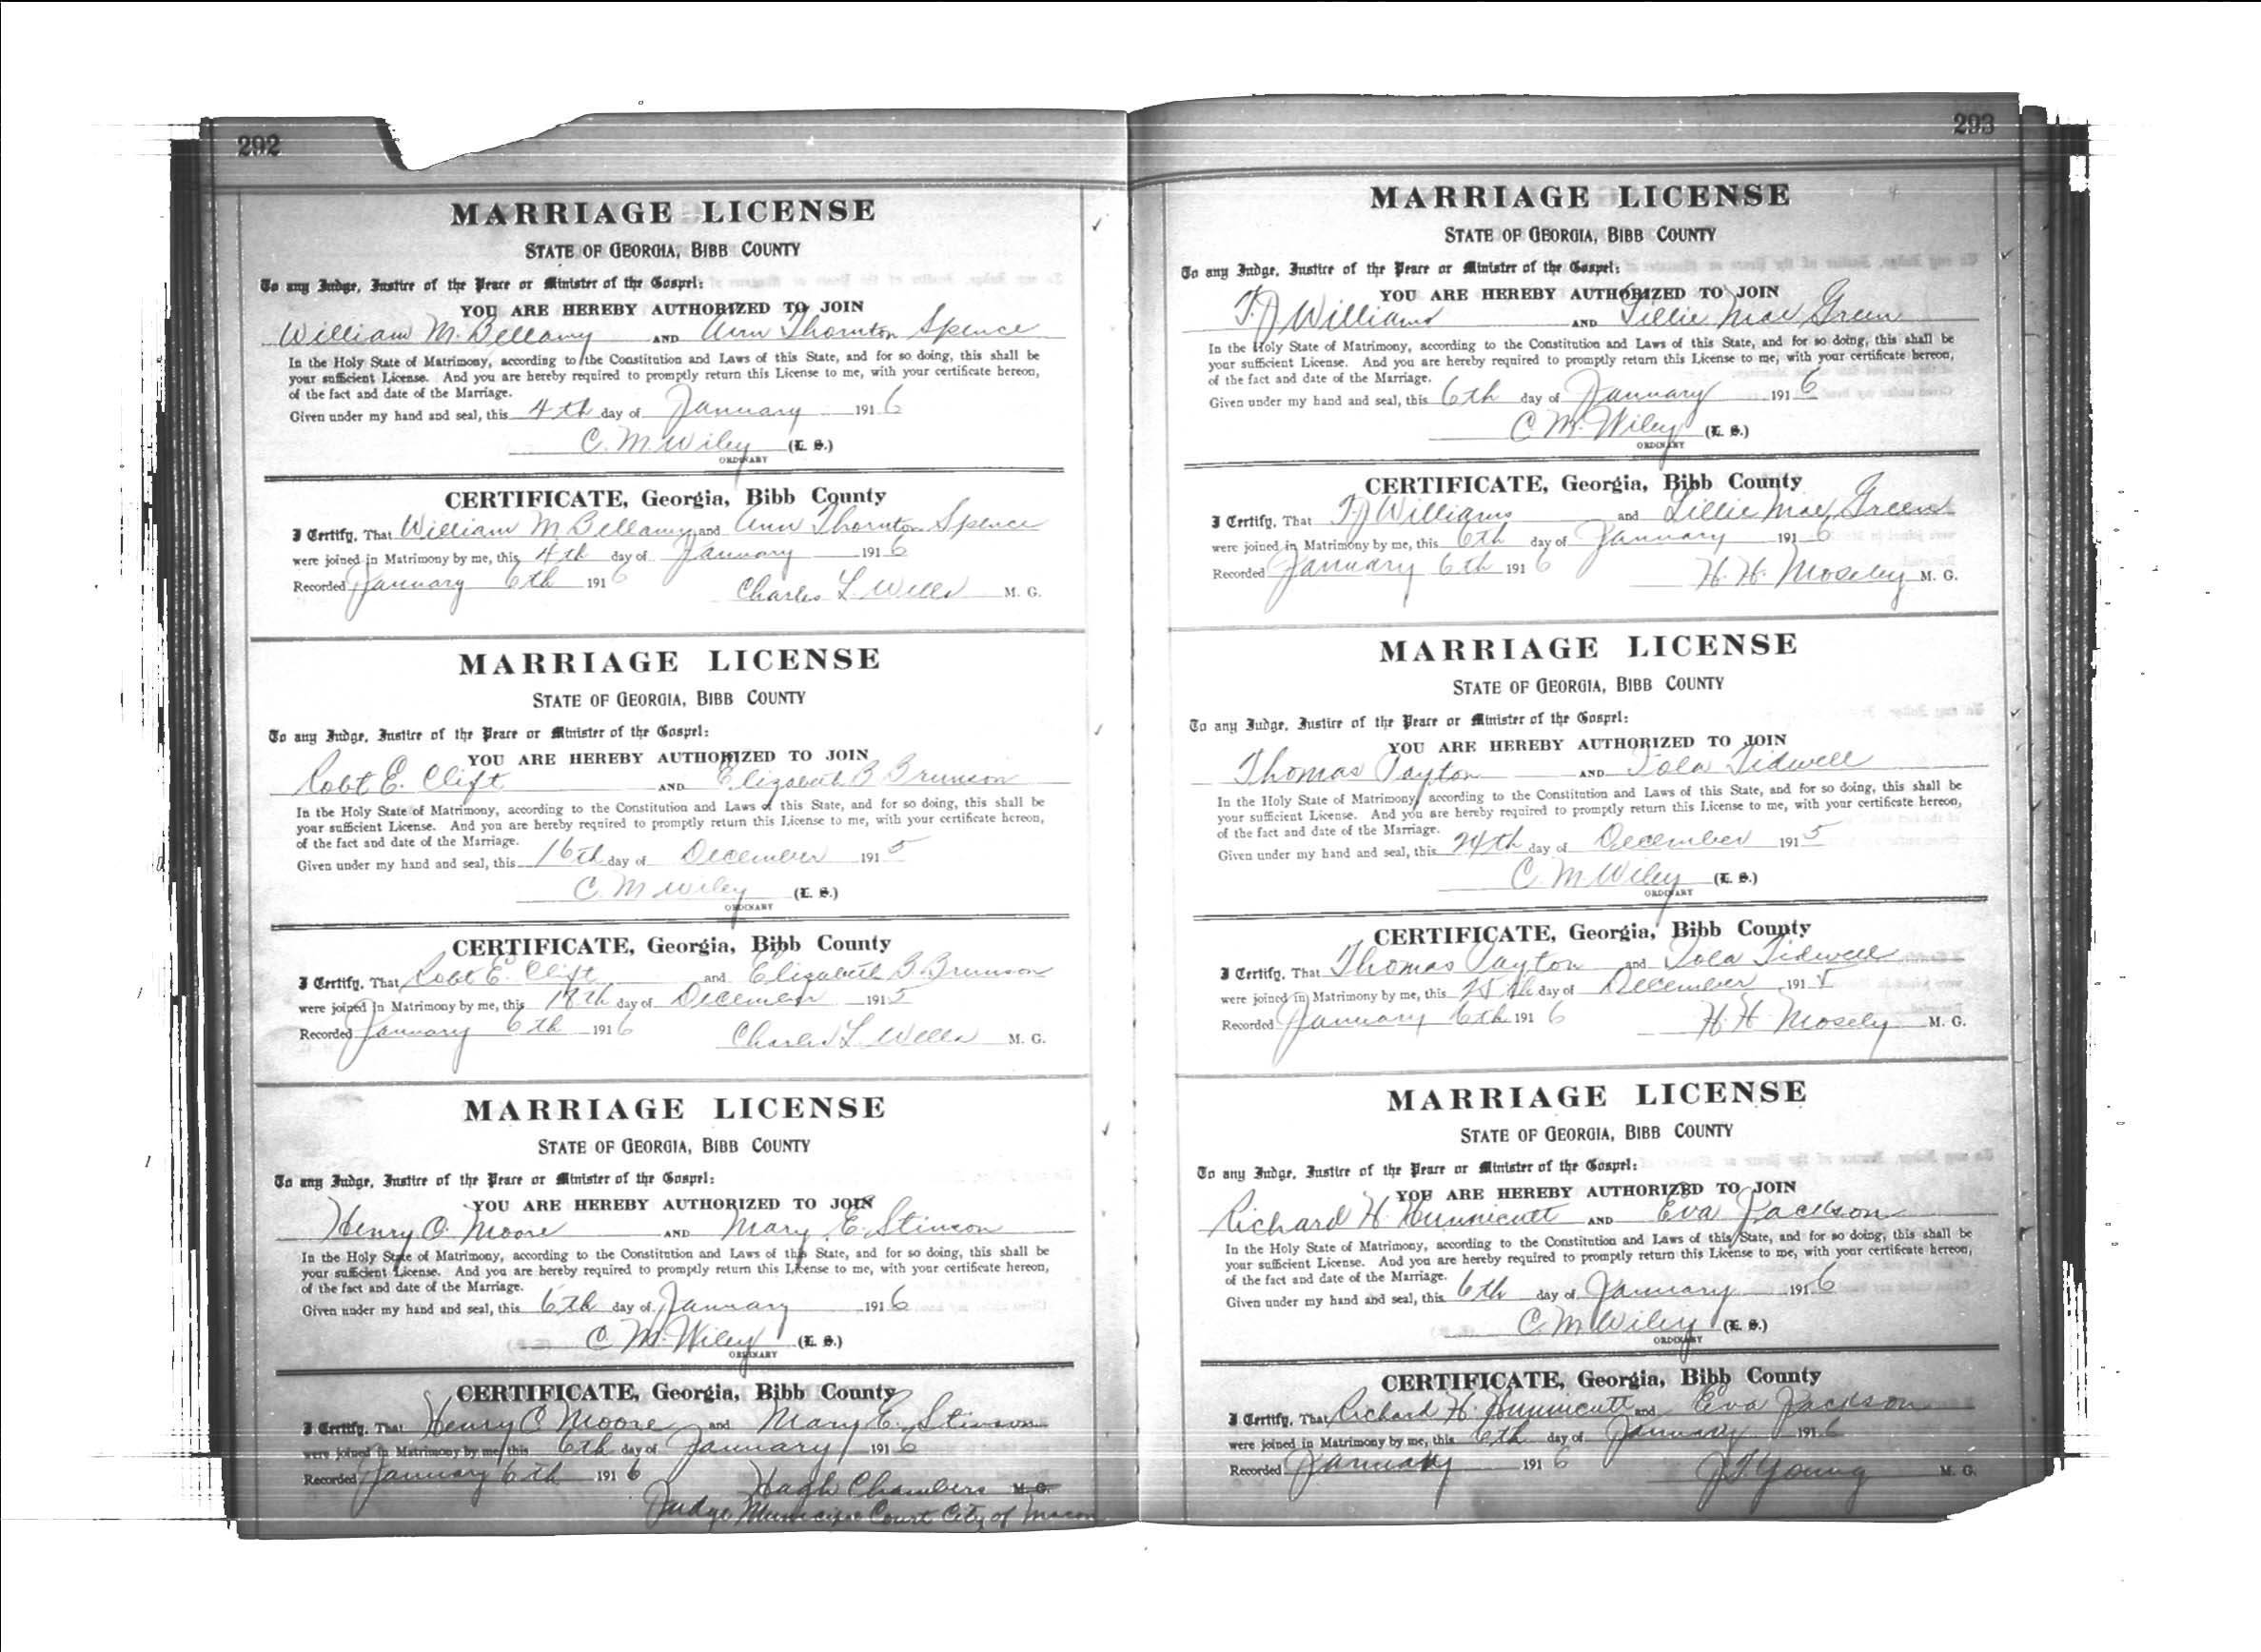 292
MARRIAGE LICENSE
STATE OF GEORGIA, BIBB COUNTY
To any Judge, Justice of the Peace or Minister of the Gospel:
YOU ARE HEREBY AUTHORIZED TO JOIN
William M. Bellamy AND Ann Thornton Spence
In the Holy State of Matrimony, according to the Constitution and Laws of this State, and for so doing, this shall be
your sufficient License. And you are hereby required to promptly return this License to me, with your certificate hereon,
of the fact and date of the Marriage.
Given under my hand and seal, this 4th day of January 1916
C. M. Wiley (L. S.)
ORDINARY
CERTIFICATE, Georgia, Bibb County
I Certify, That William M. Bellamy and Ann Thornton Spence
were joined in Matrimony by me, this 4th day of January 1916
Recorded January 6th 1916 Charles L. Wells M. G.
MARRIAGE LICENSE
STATE OF GEORGIA, BIBB COUNTY
To any Judge, Justice of the Peace or Minister of the Gospel:
YOU ARE HEREBY AUTHORIZED TO JOIN
Robt E. Clift AND Elizabeth B Brunson
In the Holy State of Matrimony, according to the Constitution and Laws of this State, and for so doing, this shall be
your sufficient License. And you are hereby required to promptly return this License to me, with your certificate hereon,
of the fact and date of the Marriage.
Given under my hand and seal, this 16th day of December 1915
C. M. Wiley (L. S.)
ORDINARY
CERTIFICATE, Georgia, Bibb County
I Certify, That Robt E. Clift and Elizabeth B. Brunson
were joined in Matrimony by me, this 18th day of December 1915
Recorded January 6th 1916 Charles L. Wells M. G.
MARRIAGE LICENSE
STATE OF GEORGIA, BIBB COUNTY
To any Judge, Justice of the Peace or Minister of the Gospel:
YOU ARE HEREBY AUTHORIZED TO JOIN
Henry O. Moore AND Mary E. Stinson
In the Holy State of Matrimony, according to the Constitution and Laws of this State, and for so doing, this shall be
your sufficient License. And you are hereby required to promptly return this License to me, with your certificate hereon,
of the fact and date of the Marriage.
Given under my hand and seal, this 6th day of January 1916
C. M. Wiley (L. S.)
ORDINARY
CERTIFICATE, Georgia, Bibb County
I Certify, That Henry O Moore and Mary E. Stinson
were joined in Matrimony by me, this 6th day of January 1916
Recorded January 6th 1916 Hugh Chambers M. G.
Judge Municipal Court City of Macon
293
MARRIAGE LICENSE
STATE OF GEORGIA, BIBB COUNTY
To any Judge, Justice of the Peace or Minister of the Gospel:
YOU ARE HEREBY AUTHORIZED TO JOIN
T. J Williams AND Lillie Mae Green
In the Holy State of Matrimony, according to the Constitution and Laws of this State, and for so doing, this shall be
your sufficient License. And you are hereby required to promptly return this License to me, with your certificate hereon,
of the fact and date of the Marriage.
Given under my hand and seal, this 6th day of January 1916
C. M. Wiley (L. S.)
ORDINARY
CERTIFICATE, Georgia, Bibb County
I Certify, That T J Williams and Lillie Mae Green
were joined in Matrimony by me, this 6th day of January 1916
Recorded January 6th 1916 H. H. Mosely M. G.
MARRIAGE LICENSE
STATE OF GEORGIA, BIBB COUNTY
To any Judge, Justice of the Peace or Minister of the Gospel:
YOU ARE HEREBY AUTHORIZED TO JOIN
Thomas Payton AND Iola Tidwell
In the Holy State of Matrimony, according to the Constitution and Laws of this State, and for so doing, this shall be
your sufficient License. And you are hereby required to promptly return this License to me, with your certificate hereon,
of the fact and date of the Marriage.
Given under my hand and seal, this 24th day of December 1915
C. M. Wiley (L. S.)
ORDINARY
CERTIFICATE, Georgia, Bibb County
I Certify, That Thomas Payton and Iola Tidwell
were joined in Matrimony by me, this 25th day of December 1915
Recorded January 6th 1916 H. H. Mosely M. G.
MARRIAGE LICENSE
STATE OF GEORGIA, BIBB COUNTY
To any Judge, Justice of the Peace or Minister of the Gospel:
YOU ARE HEREBY AUTHORIZED TO JOIN
Richard H. Hunnicutt AND Eva Jackson
In the Holy State of Matrimony, according to the Constitution and Laws of this State, and for so doing, this shall be
your sufficient License. And you are hereby required to promptly return this License to me, with your certificate hereon,
of the fact and date of the Marriage.
Given under my hand and seal, this 6th day of January 1916
C. M. Wiley (L. S.)
ORDINARY
CERTIFICATE, Georgia, Bibb County
I Certify, That Richard H. Hunnicutt and Eva Jackson
were joined in Matrimony by me, this 6th day of January 1916
Recorded January 1916 J T Young M. G.